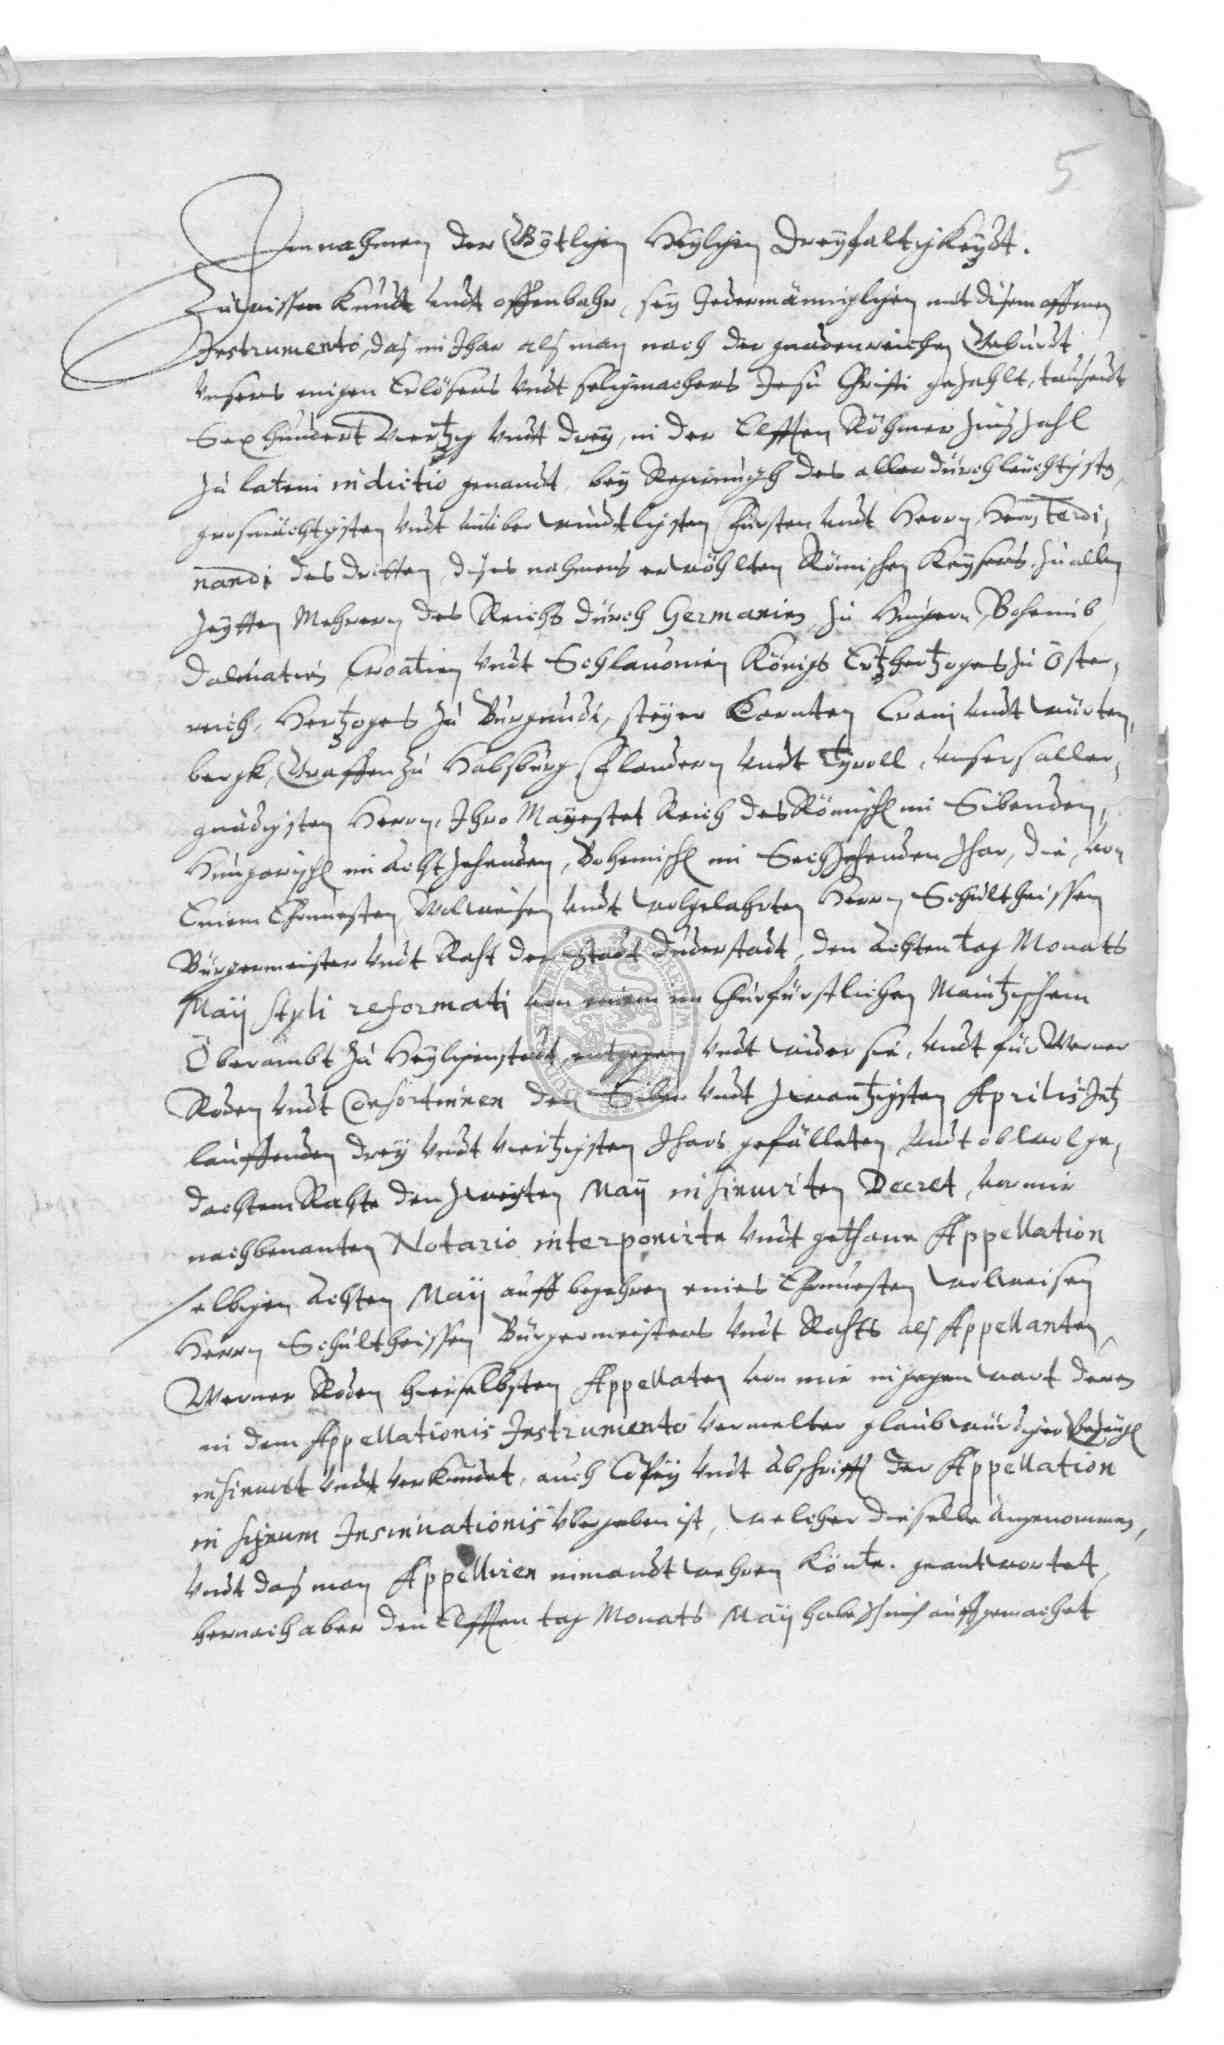 5
Im nahmen der Götlichen Heyligen Dreyfaltigkeydt.
Zu wissen Kundt undt offenbahr, sey Jedermänniglichen mit disem offenen
Instrumento, daß im Jhar alß man nach der gnadenreichen Geburdt
Unsers einigen Erlösers undt seligmachers Jesu Christi gezahlt, tausendt
Sexhundert Viertzig undt drey, in der Elfften Röhmer Zinß Zahl
zu latein indictio genandt, bey Regirungh des aller durchleuchtigsten,
grosmächtigsten undt unüberwindtligsten Fürsten undt Herrn, Herrn Ferdi,
nandi des dritten, dises nahmens erwöhlten Römischen Keysers, zu allen
Zeytten Mehrern des Reichs durch Germanien, zu Hungern, Boheimb
Dalmatien Croatien undt Schlauonien Königs Ertzhertzogens zu Öster,
reich, Hertzogens zu Burgundi, steyer Cärnten Crain undt würten,
bergk, Graffen zu Habsburg, Flandern undt Tyroll, unsers aller,
gnädigsten Herrn, Ihro Mayestet Reich des Römisch im Sibenden,
Hungarisch im achtzehenden, Bohemisch im Sechzehenden Jhar, die, von
Einem Ehrnuesten, Wolweisen undt wolgelahrten Herrn Schultheissen
Bürgermeister undt Raht der Stadt Duderstadt, den achten tag Monats
Maÿ styli reformati von einem im Churfürstlichen Maintzischem
Oberambt zu Heyligenstadt, entgegen undt wider sie, undt für Werner
Roden undt Consortinnen den Siben undt zwantzigsten Aprilis Jtz
lauffenden drey undt viertzigsten Jhars gefälleten, undt obwolge,
dachtem Rahte den zweyten Maÿ insinuirten Decret, vor mir
nachbenanten Notario interponirte undt gethane Appellation
selbigen achten Maÿ auff begehren eines Ehrnuesten Wolweisen
Herrn Schultheissen Bürgermeisters undt Rahts alß Appellanten,
Werner Roden hierselbsten Appellaten von mir in gegenwart deren
in dem Appellationis Instrumento vermelter glaubwürdiger Gezeugh
insinuirt undt verkündet, auch Copey undt abschrifft der Appellation
in signum Insinuationis übergeben ist, welcher dieselbe angenommen,
undt daß man Appelliren nimandt wehren könte. geantwortet,
hernach aber den Elfften tag Monats Maÿ habe ich mich auffgemachet